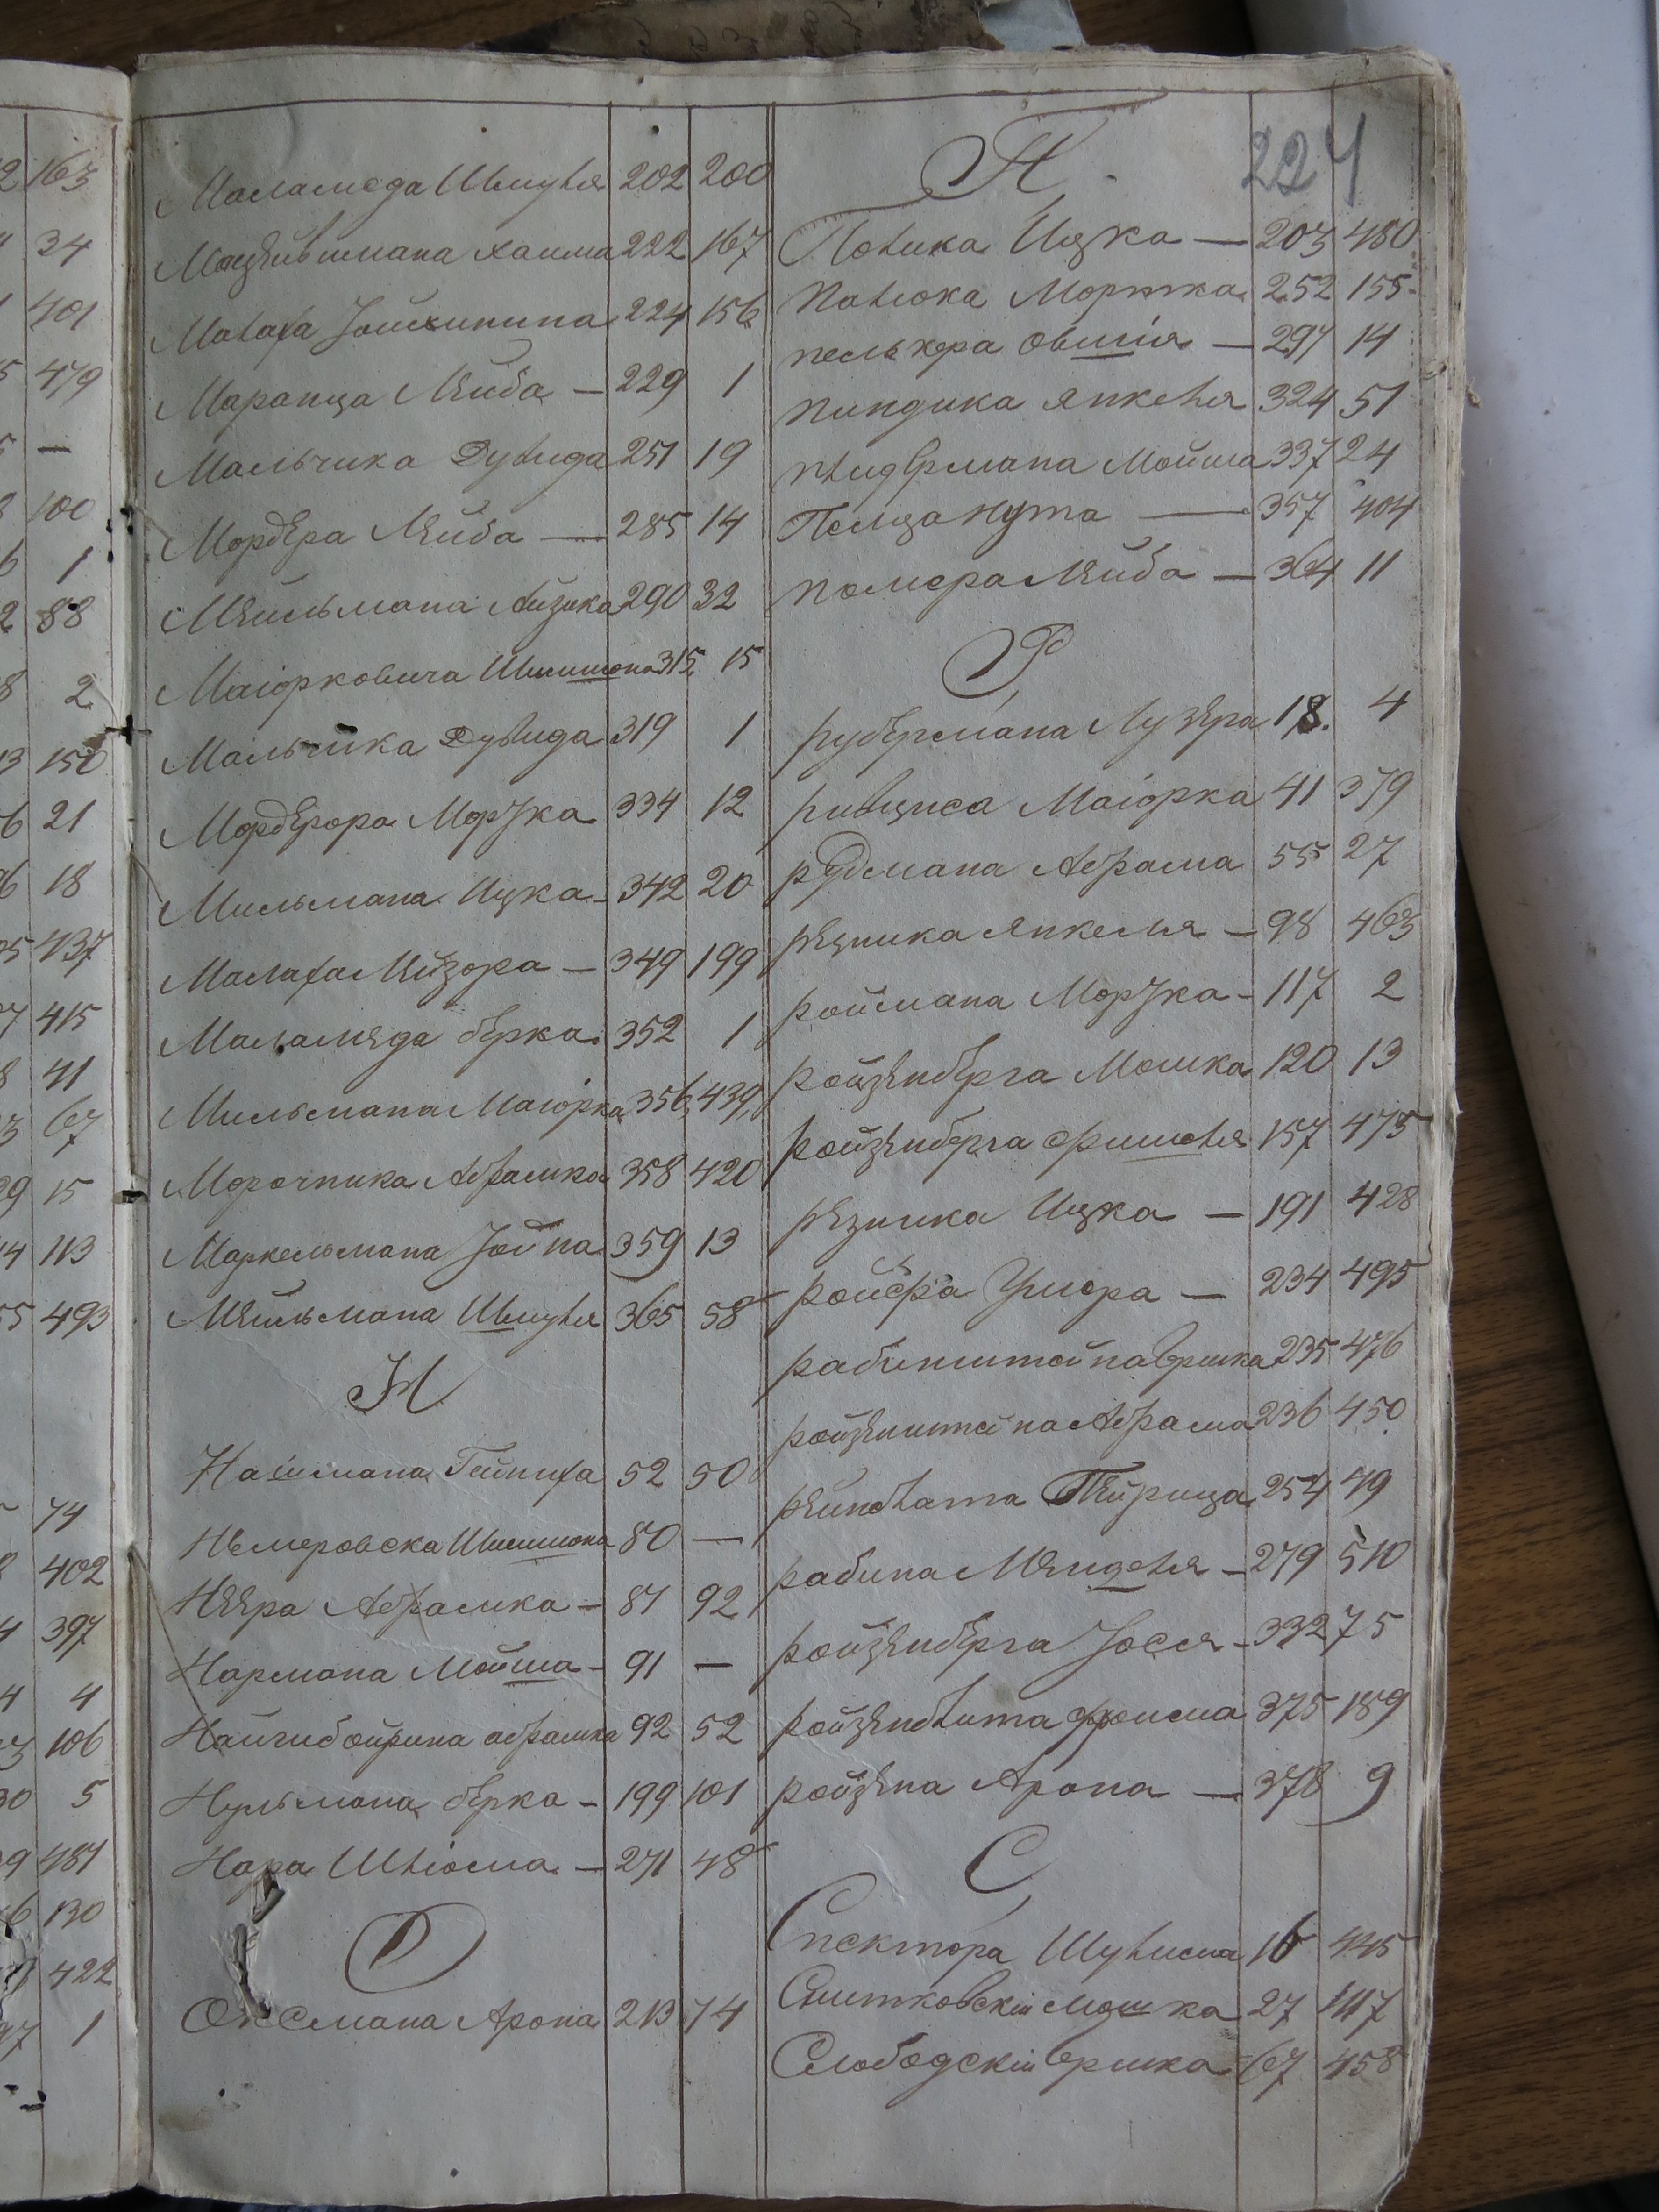 163
34
401
479
—
100
1
88
2
150
21
18
437
415
41
67
15
113
493
74
402
397
4
106
5
481
130
422
1
Маламеда Шмуля 202 200
Хаима 222 167
Малаха 224 156
Маранца Лейба — 229 1
Мальчика Дувида 251 19
Мордера Лейба — 285 14
Мейльмана Айзика 290 32
Маіорковича Шлимона 315 15
Мальчика Дувида 319 1
Мордерора Моржка 334 12
Мильмана Ицка 342 20
Малаха Лейзора — 349 199
Маламеда берка 352 1
Мильмана Маіорка 356 439
Морочника Абрамка 358 420
Маркельмана 359 13
Мейльмана Шмуля 365 58
Н
Наймана Гейниха 52 50
Немеровска Шлимона 80 —
Неера Абрамка — 81 92
Нармана Мойша — 91 —
абрамка 92 52
Нульмана берка — 199 101
Нара Шліома — 271 48
О
Оксмана Арона 213 74
224
П
Полика Ицка — 203 480
Палюка Мортка 252 155
пелькера Овшія — 297 14
пиндика Янкеля 324 51
Мойша 337 24
Пелца Нута — 357 404
помера Лейба — 364 11
Р
рубермана Лузера 18. 4
ривциса Маіорка 41 379
рудмана Абрама 55 27
резника Янкеля — 98 463
роймана Моржка — 117 2
ройзенберга Мошка 120 13
ройзенберга Фишеля 157 475
резника Ицка — 191 428
ройфа Умера — 234 495
рабинштейна Ершка 235 476
ройзенштейна Абрама 236 450
рейнблата 254 49
рабина Менделя — 279 510
ройзенберга Іося — 332 75
ройзенблита Фроима 375 189
ройзена Арона — 378 9
С
Спектора Шулима 16 445
Снитковскій Мошка 27 117
Слободскій Ершка 67 458